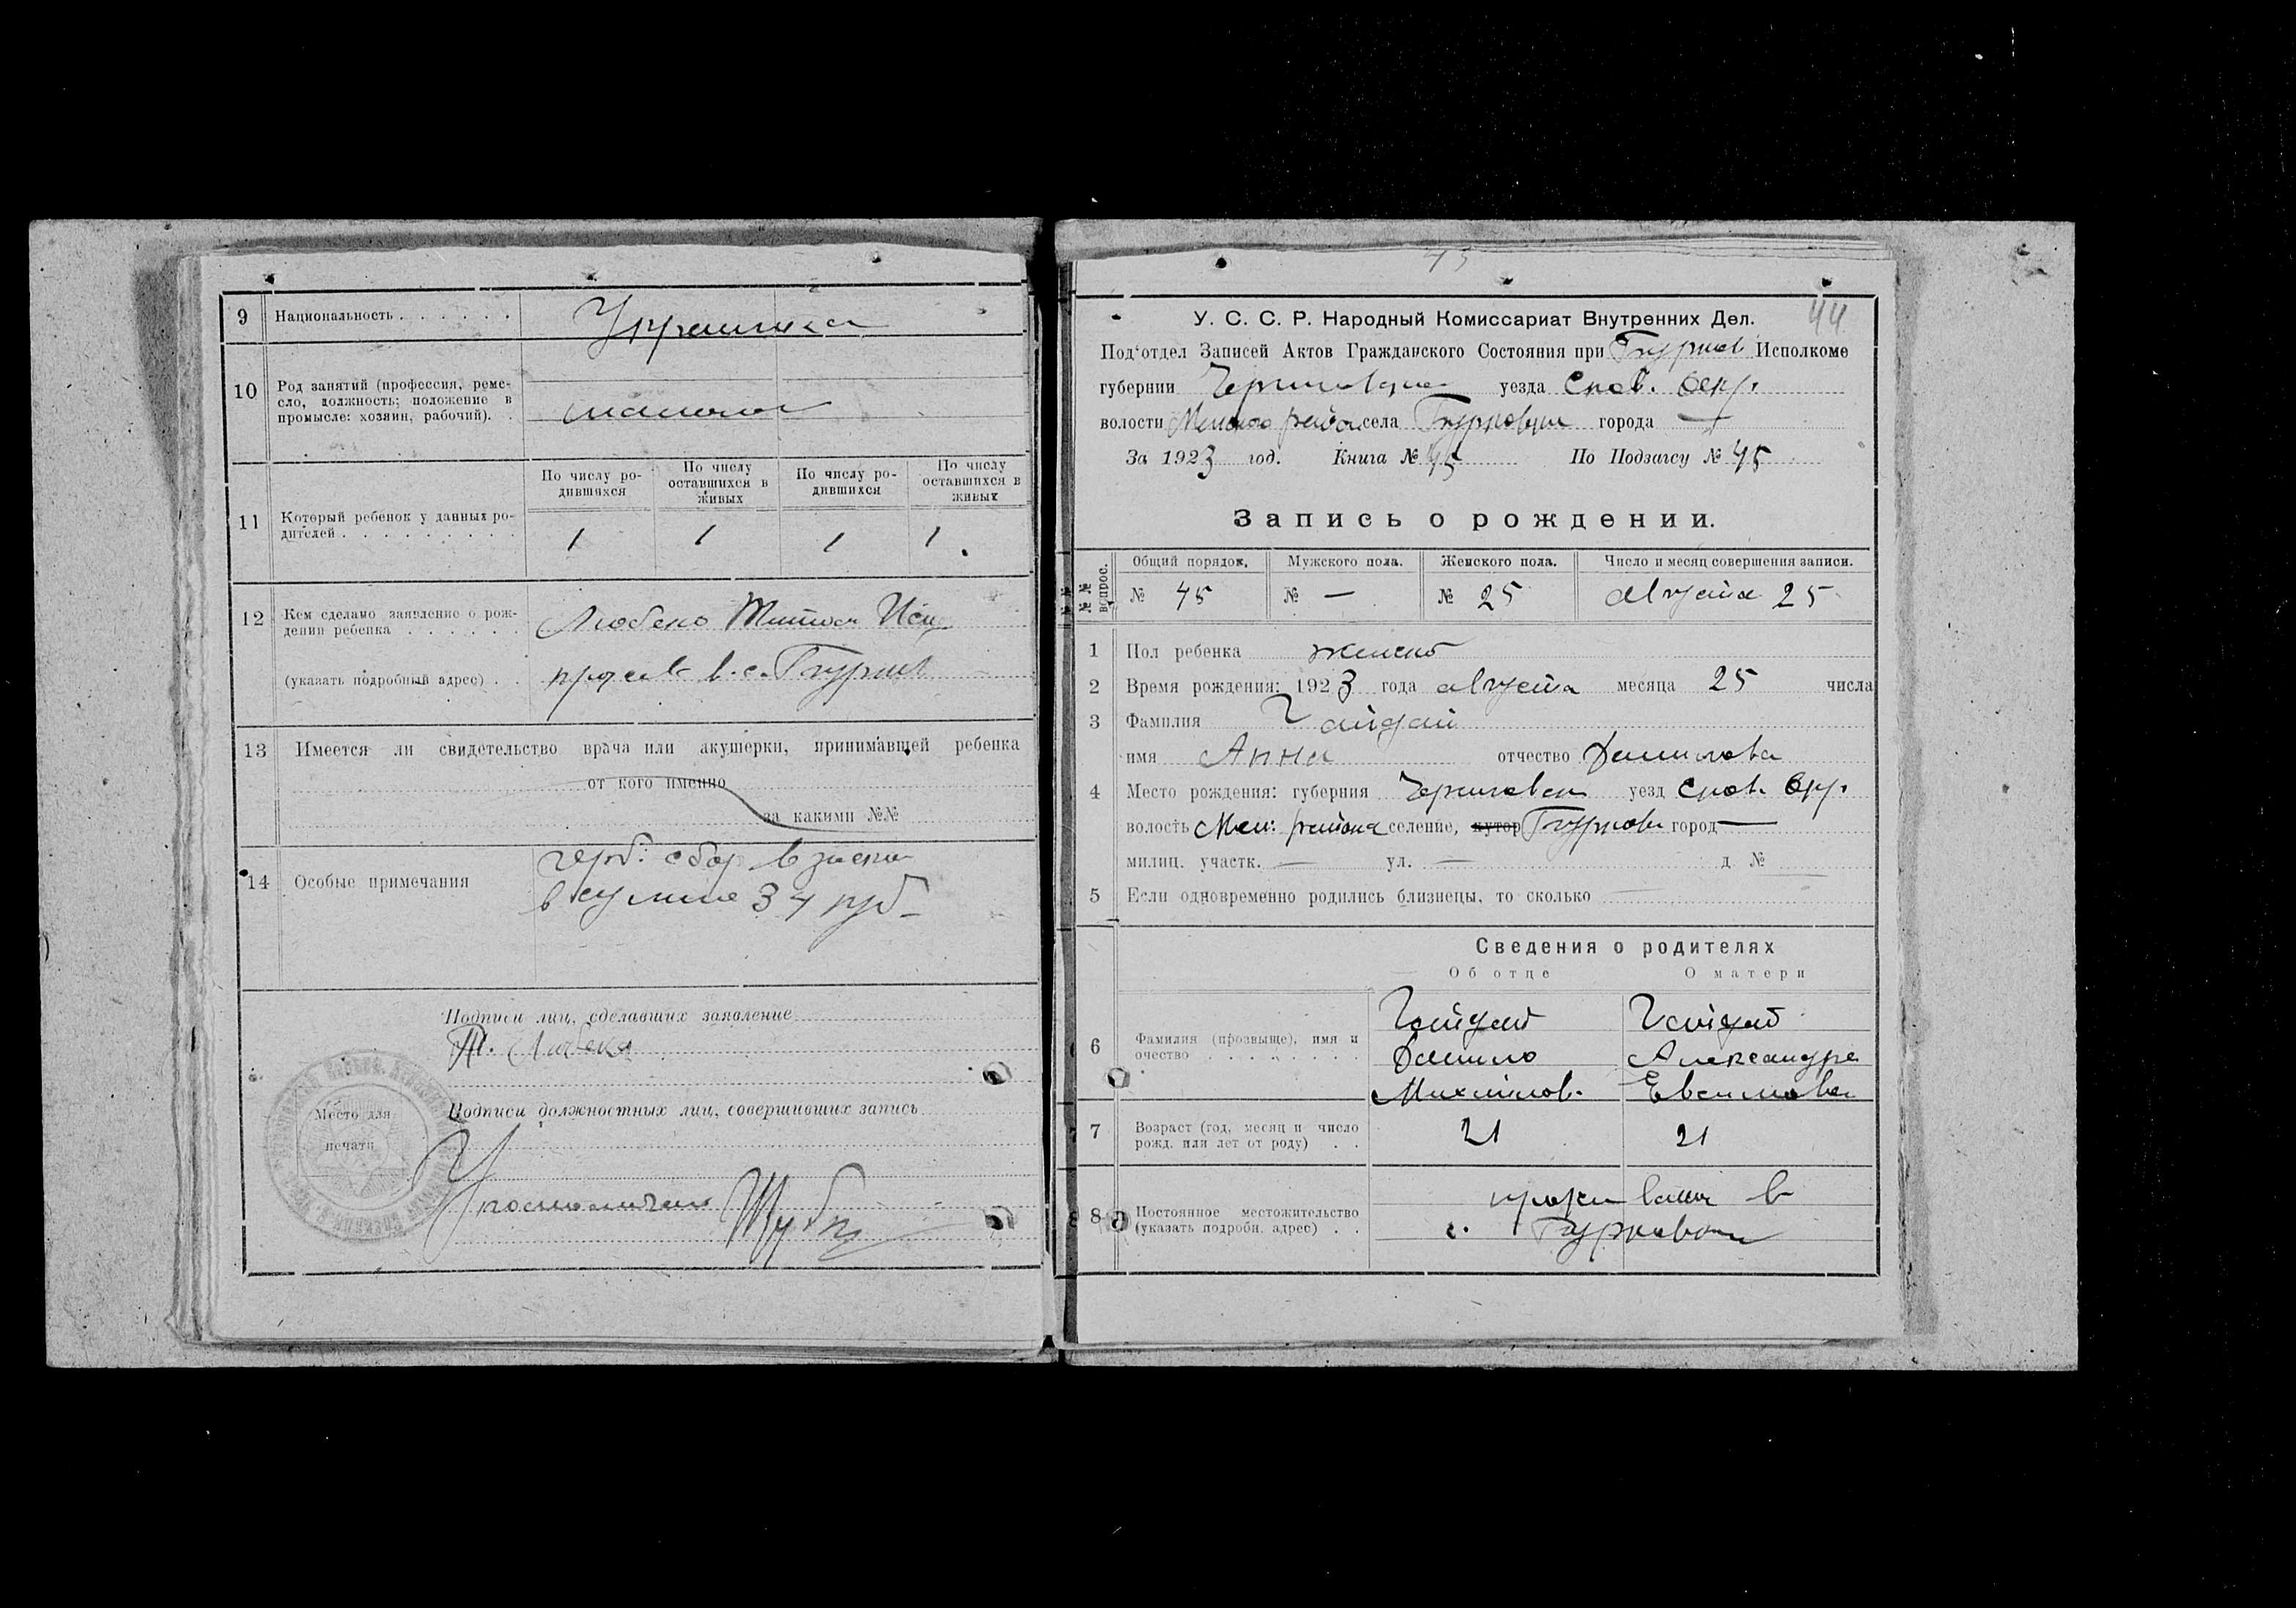 9 Национальность . . . . . .
Украинка
10 Род занятий (профессия, реме-
сло, должность; положение в
промысле: хозяин, рабочий). .
По числу ро-
дившихся
По числу
оставшихся в
живых
По числу ро-
дившихся
По числу
оставшихся в
живых
11 Который ребенок у данных ро-
дителей . . . . . . . . .
1 1 1 1.
12 Кем сделано заявление о рож-
дении ребенка . . . . . .
Любеко
(указать подробный адрес) . .
в. с.
13 Имеется ли свидетельство врача или акушерки, принимавшей ребенка
от кого именно
за какими №№
14 Особые примечания
герб: сбор взыскан
в сумме 34 руб
Подписи лиц, сделавших заявление
Т. Любека
Место для
печати
Подписи должностных лиц, совершивших запись
45
44
У. С. С. Р. Народный Комиссариат Внутренних Дел.
Под‘отдел Записей Актов Гражданского Состояния при Исполкоме
губернии Черниговская уезда Снов. окр.
волости Менского района села города —
За 1923 год. Книга № 45 По Подзагсу № 45
Запись о рождении.
№№ вопрос.
Общий порядок. Мужского пола. Женского пола. Число и месяц совершения записи.
№ 45 № — № 25 Августа 25
1 Пол ребенка женский
2 Время рождения: 1923 года августа месяца 25 числа
3 Фамилия Гайдай
имя Анна отчество Данилова
4 Место рождения: губерния Черниговск уезд Снов. Окр.
волость Мен: района селение, хутор город —
милиц. участк. — ул. — д. №
5 Если одновременно родились близнецы, то сколько
Сведения о родителях
Об отце О матери
6 Фамилия (прозвыще), имя и
очество . . . . . . . .
Гайдай Гайдай
Данило Александра
Михайлов. Евсимовна
7 Возраст (год, месяц и число
рожд. или лет от роду) . .
21 21
8 Постоянное местожительство
(указать подробн. адрес) . .
с.